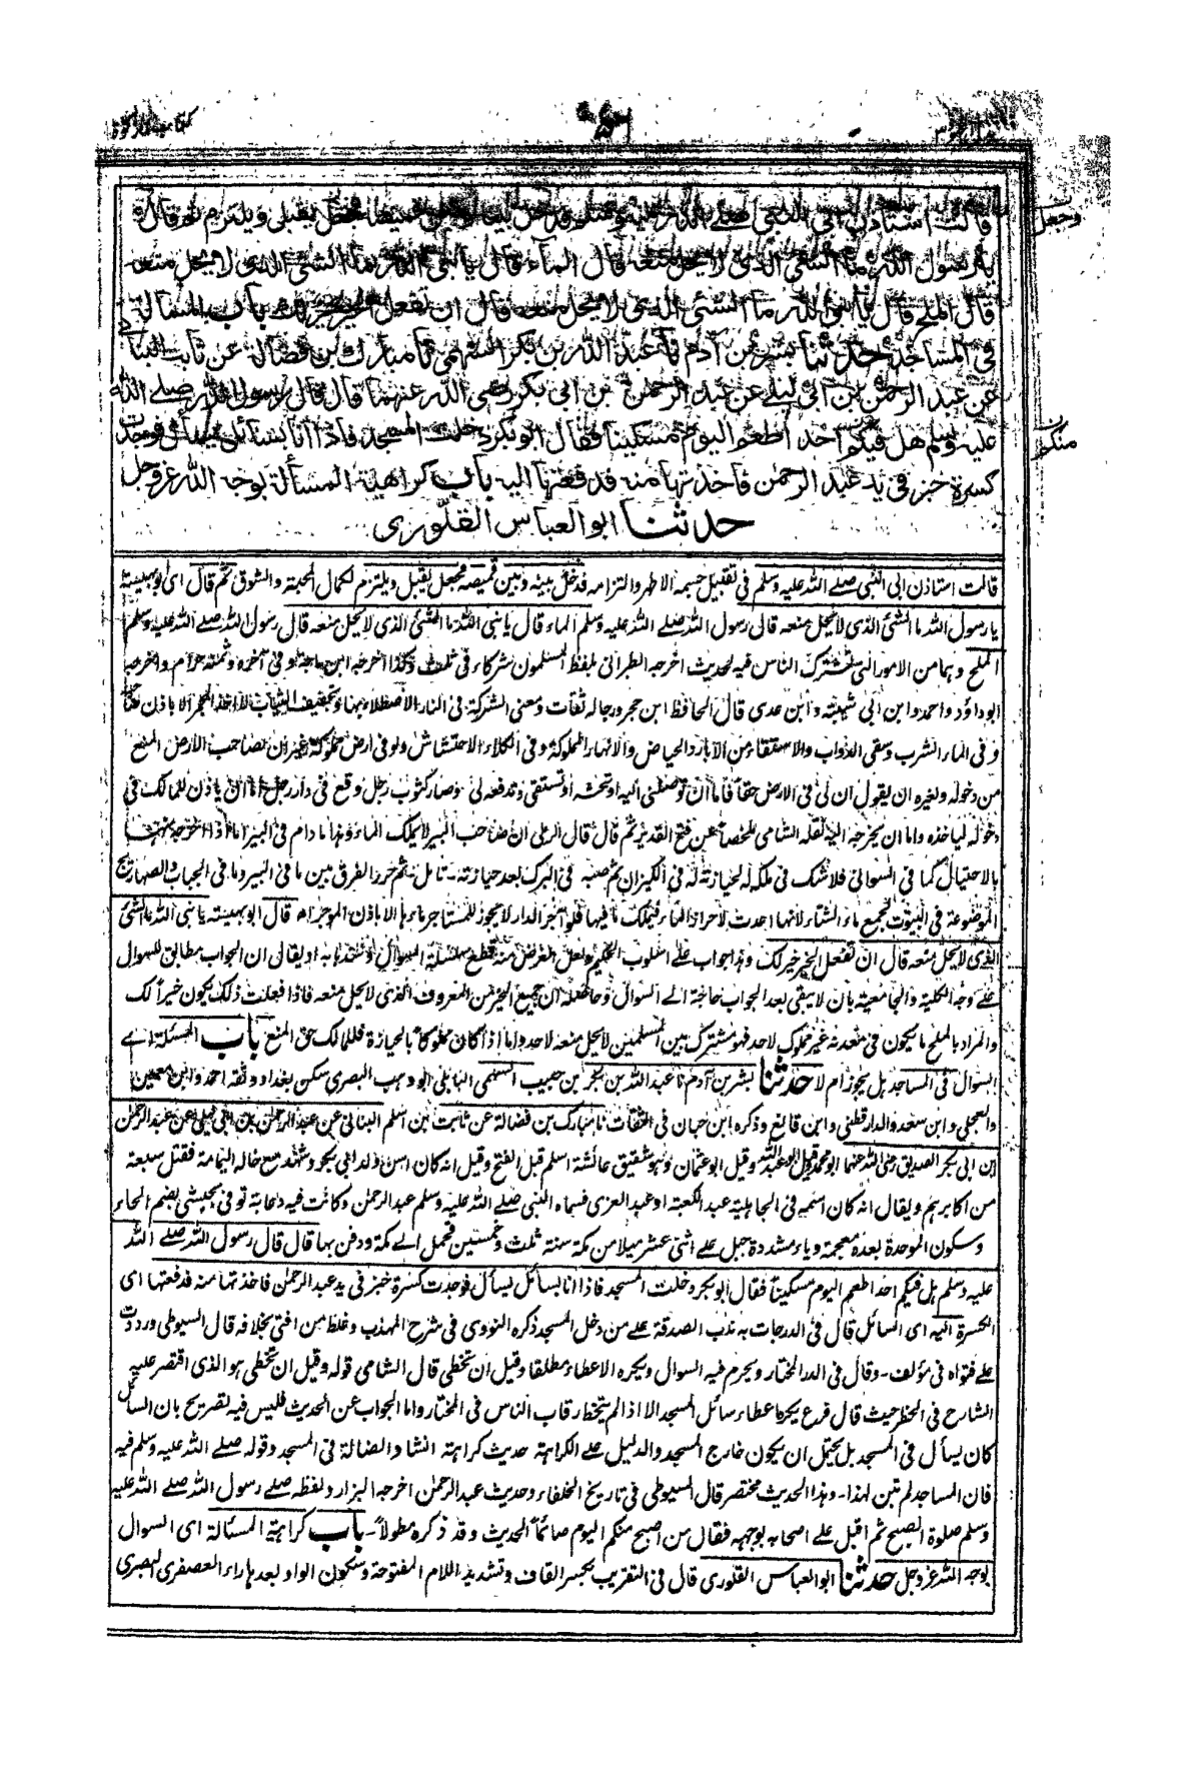 قالت استأذن ابي النبي صلے الله عليه وسلم فدخل بينه وبين قميصه فجعل يقبل ويلتزم ثم قال
وجعل
يا رسول الله ما الشئ الذى لا يحل منعه قال الماء قال يا نبى الله ما الشئ الذى لا يحل منعه
قال الملح قال يا نبى الله ما الشئ الذى لا يحل منعه قال ان تفعل الخير خير لك باب المسألة
فى المساجد حدثنا بشر بن آدم نا عبد الله بن بكر السهمى نا مبارك بن فضالة عن ثابت البنانى
عن عبد الرحمن بن ابى ليلے عن عبد الرحمن بن ابى بكر رضى الله عنهما قال قال رسول الله صلے الله
عليه وسلم هل فيكم احد اطعم اليوم مسكينا فقال ابو بكر دخلت المسجد فاذا انا بسائل يسأل فوجدت
منكم
كسرة خبز فى يد عبد الرحمن فأخذتها منه فدفعتها اليه باب كراهية المسألة بوجه الله عز وجل
حدثنا ابو العباس القلورى
قالت استاذن ابى النبى صلے الله عليه وسلم فى تقبيل جسمه الاطهر والتزامه فدخل بينه وبين قميصه فجعل يقبل ويلتزم لكمال المحبة والشوق ثم قال اى ابو بهيسة
يا رسول الله ما الشئ الذى لا يحل منعه قال رسول الله صلے الله عليه وسلم الماء قال يا نبى الله ما الشئ الذى لا يحل منعه قال رسول الله صلے الله عليه وسلم
الملح وهما من الامور التى يشترك الناس فيه لحديث اخرجه الطبرانى بلفظ المسلمون شركاء فى ثلث وكذا اخرجه ابن ماجة وفى آخره وثمنه حرام واخرجه
ابو داؤد واحمد وابن ابى شيبة وابن عدى قال الحافظ ابن حجر ورجاله ثقات ومعنى الشركة فى النار الاصطلاء بها وتجفيف الثياب لا اخذ الجمر الا باذن
وفى الماء الشرب وسقى الدواب والاستقاء من الآبار والحياض والانهار المملوكة وفى الكلاء الاحتشاش ولو فى ارض مملوكة غير ان لصاحب الارض المنع
من دخوله ولغيره ان يقول ان لى فى الارض حقا فاما ان توصلنى اليه او تحشه او تستقى وتدفعه لى وصار كثوب رجل وقع فى دار رجل اما ان ياذن للمالك فى
دخوله لياخذه واما ان يخرجه اليه نقله الشامى ملخصا عن فتح القدير ثم قال قال الرملى ان صاحب البير لا يملك الماء وهذا ما دام فى البير اما اذا اخرجه منها
بالاحتيال كما فى السوانى فلا شك فى ملكه له لحيازته له فى الكيزان ثم صبه فى البرك بعد حيازته - تامل ثم حرر الفرق بين ما فى البير وما فى الجباب الصهاريج
الموضوعة فى البيوت لجمع ماء الشتاء لانها اعدت لاحراز الماء فيملك ما فيها فلو آجر الدار لا يجوز للمستاجر ماءها الا باذن الموجر اه قال ابو بهيسة يا نبى الله ما الشئ
الذى لا يحل منعه قال ان تفعل الخير خير لك وهذا جواب على اسلوب الحكيم ولعل الغرض منه قطع سلسلة السوال او يقال ان الجواب مطابق للسوال
على وجه الكلية والجامعية بان لا يبقى بعد الجواب حاجة الى السوال وحاصله ان جميع الخير من المعروف الذى لا يحل منعه فاذا فعلت ذلك يكون خيرا لك
والمراد بالملح ما يكون فى معدنه غير مملوك لاحد فهو مشترك بين المسلمين لا يحل منعه لاحد واما اذا كان مملوكا بالحيازة فللمالك حق المنع باب المسئلة اے
السوال فى المساجد هل يجوز ام لا حدثنا بشر بن آدم نا عبد الله بن بكر بن حبيب السهمى الباهلى ابو وهب البصرى سكن بغداد وثقه احمد وابن معين
والعجلى وابن سعد والدارقطنى وابن قانع وذكره ابن حبان فى الثقات نا مبارك بن فضالة عن ثابت بن اسلم البنانى عن عبد الرحمن بن ابى ليلى عن عبد الرحمن
ابن ابى بكر الصديق رضى الله عنهما ابو محمد وقيل ابو عبد الله وقيل ابو عثمان وهو شقيق عائشة اسلم قبل الفتح وقيل انه كان اسن ولد ابى بكر وشهد مع خالد اليمامة فقتل سبعة
من اكابرهم ويقال انه كان اسمه فى الجاهلية عبد الكعبة او عبد العزى فسماه النبى صلے الله عليه وسلم عبد الرحمن وكانت فيه دعابة توفى بحبشى بضم الحاء
وسكون الموحدة بعده معجمة وياء مشددة جبل على اثنى عشر ميلا من مكة سنة ثلث وخمسين فحمل الے مكة ودفن بها قال قال رسول الله صلے الله
عليه وسلم هل فيكم احد اطعم اليوم مسكينا فقال ابو بكر دخلت المسجد فاذا انا بسائل يسأل فوجدت كسرة خبز فى يد عبد الرحمن فاخذتها منه فدفعتها اى
الكسرة اليه اى السائل قال فى الدرجات به ندب الصدقة على من دخل المسجد ذكره النووى فى شرح المهذب وغلط من افتى بخلافه قال السيوطى ورددت
على فتواه فى مؤلف - وقال فى الدر المختار ويحرم فيه السوال ويكره الاعطاء مطلقا وقيل ان تخطى قال الشامى قوله وقيل ان تخطى هو الذى اقتصر عليه
الشارح فى الحظر حيث قال فرع يكره اعطاء سائل المسجد الا اذا لم يتخط رقاب الناس فى المختار واما الجواب عن الحديث فليس فيه تصريح بان السائل
كان يسأل فى المسجد بل يحتمل ان يكون خارج المسجد والدليل على الكراهة حديث كراهة انشاد الضالة فى المسجد وقوله صلے الله عليه وسلم فيه
فان المساجد لم تبن لهذا - وهذا الحديث مختصر قال السيوطى فى تاريخ الخلفاء وحديث عبد الرحمن اخرجه البزار ولفظه صلے رسول الله صلے الله عليه
وسلم صلوة الصبح ثم اقبل على اصحابه بوجهه فقال من اصبح منكم اليوم صائما الحديث وقد ذكره مطولا - باب كراهية المسئالة اى السوال
بوجه الله عز وجل حدثنا ابو العباس القلورى قال فى التقريب بكسر القاف وتشديد اللام المفتوحة وسكون الواو بعدها راء العصفرى البصرى